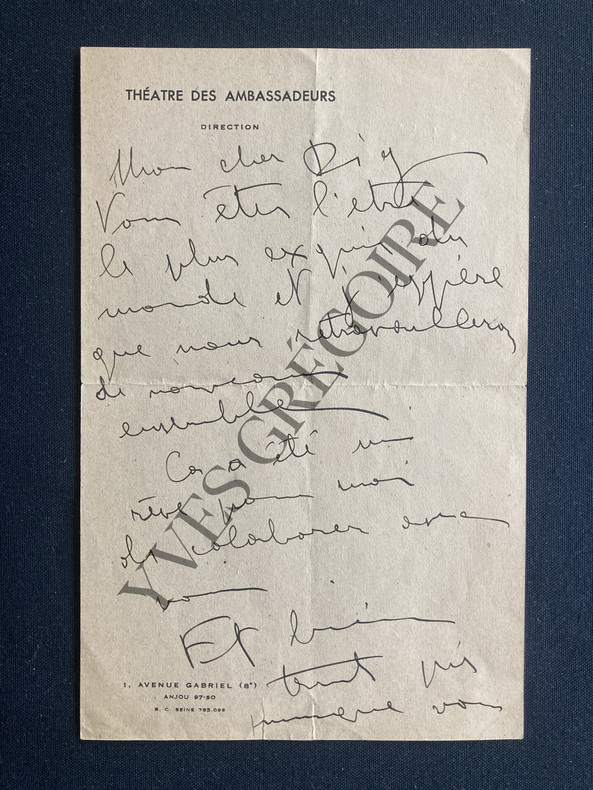 THÉATRE DES AMBASSADEURS
DIRECTION
Mon cher
Vous êtes l'être
le plus exquis du
monde et j'espère
que nous retravaillerons
de nouveau
ensemble
Ça a été un
rêve pour moi
de colaborer avec
vous
Et bien
tant pis
puisque vous
1, AVENUE GABRIEL (8e)
ANJOU 97-50
R. C. SEINE 755.099
YVES GRÉGOIRE